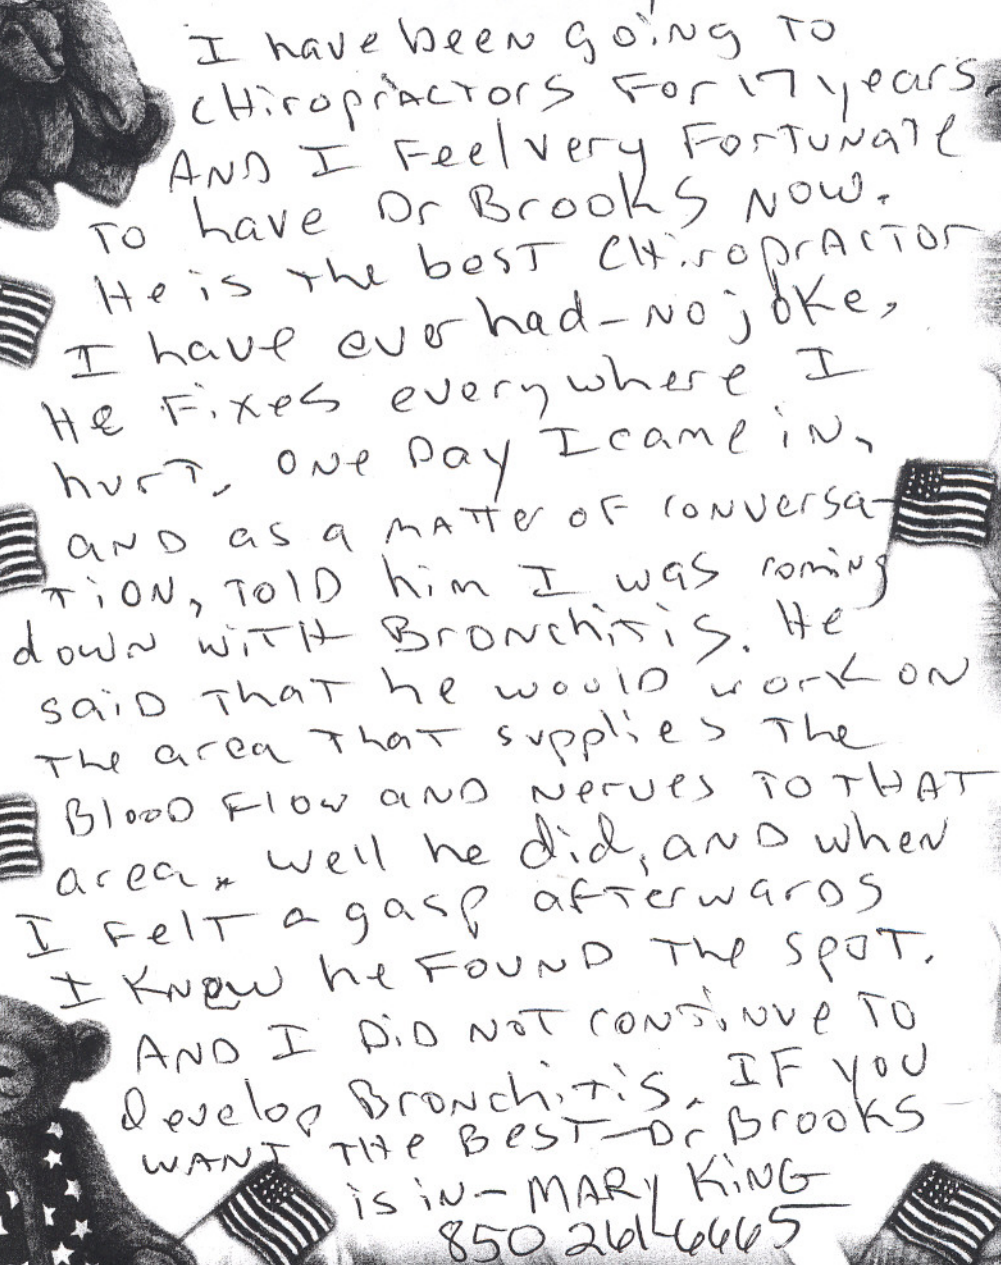 I have been going to
chiropractors for 17 years.
And I feel very fortunate
to have Dr Brooks now.
He is the best chiropractor
I have ever had - no joke,
He fixes everywhere I
hurt. One Day I came in,
and as a matter of conversa-
tion, told him I was coming
down with Bronchitis. He
said that he would work on
the area that supplies the
Blood flow and nerves to that
area. Well he did, and when
I felt a gasp afterwards
I knew he found the spot.
And I did not continue to
develop Bronchitis. If you
want the Best - Dr Brooks
is in - Mary King
850 261-6665